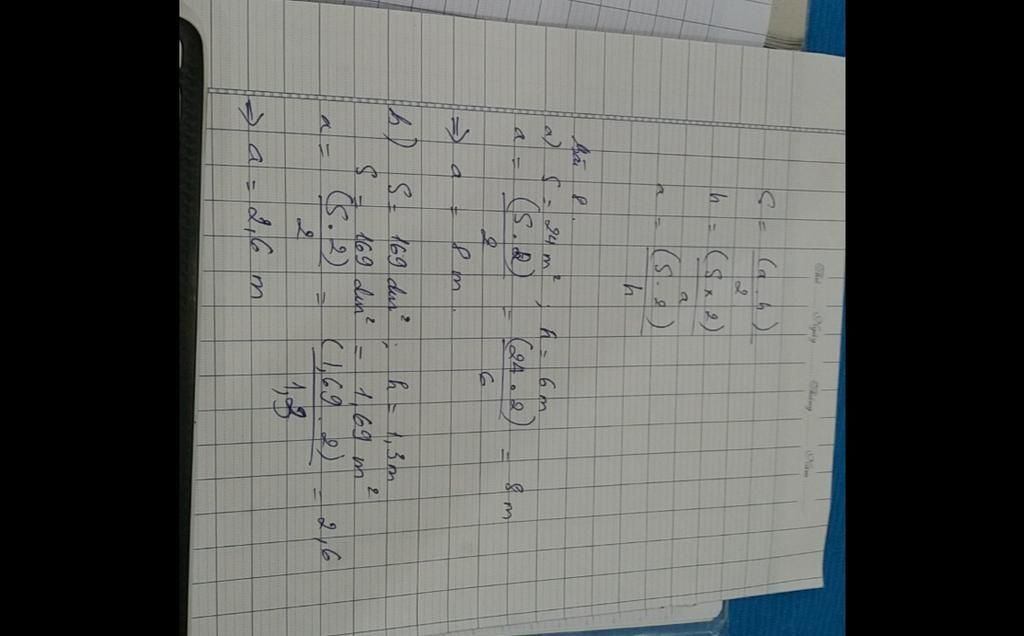 Thứ Ngày Tháng Năm
S = (a.h)
2
h = (S x 2)
a
a = (S.2)
h
Bài 8.
a) S = 24 m² ; h = 6 m
a = (S.2) = (24.2) = 8 m
2 6
⇒ a = 8 m.
b) S = 169 dm² ; h = 1,3 m
S = 169 dm² = 1,69 m²
a = (S.2) = (1,69.2) = 2,6
2 1,3
⇒ a = 2,6 m